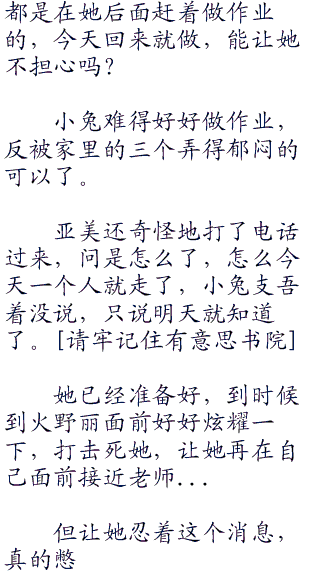 都是在她后面赶着做作业
的，今天回来就做，能让她
不担心吗？
小兔难得好好做作业，
反被家里的三个弄得郁闷的
可以了。
亚美还奇怪地打了电话
过来，问是怎么了，怎么今
天一个人就走了，小兔支吾
着没说，只说明天就知道
了。[请牢记住有意思书院]
她已经准备好，到时候
到火野丽面前好好炫耀一
下，打击死她，让她再在自
己面前接近老师...
但让她忍着这个消息，
真的憋